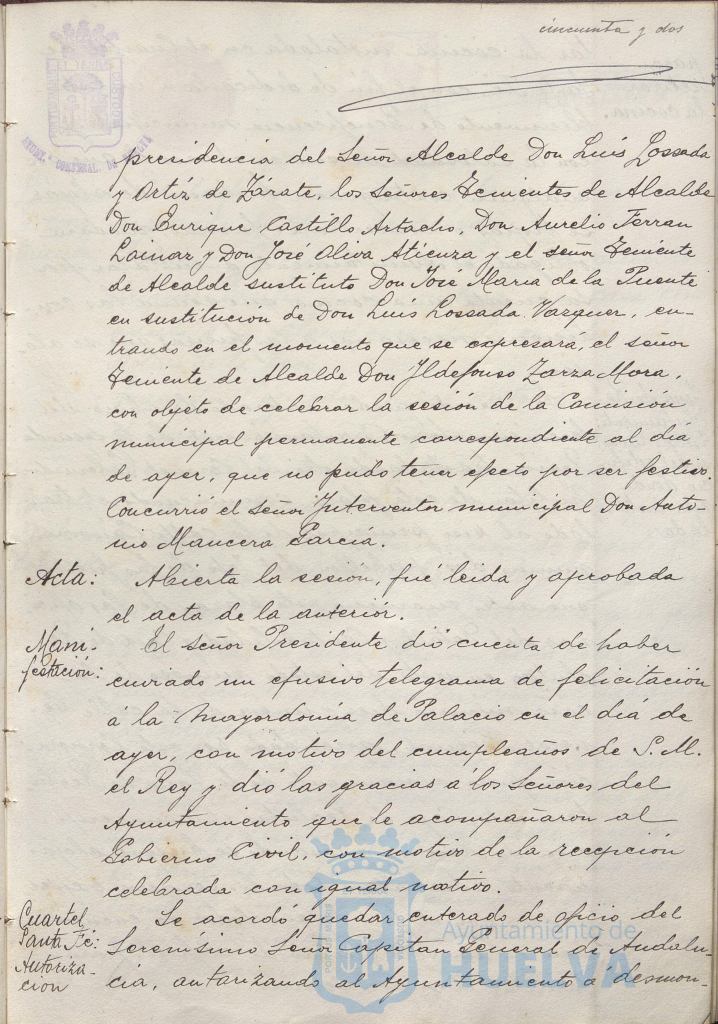 cincuenta y dos
presidencia del Señor Alcalde Don Luis Lossada
y Ortiz de Zárate, los Señores Tenientes de Alcalde
Don Enrique Castillo Artacho, Don Aurelio Ferran
y Don José Oliva Atienza y el señor Teniente
de Alcalde sustituto Don José Maria de la Puente
en sustitución de Don Luis Lossada Vazquez, en-
trando en el momento que se expresará, el señor
Teniente de Alcalde Don Yldefonso Zarza Mora,
con objeto de celebrar la sesión de la Comisión
municipal permanente correspondiente al dia
de ayer, que no pudo tener efecto por ser festivo.
Concurrió el Señor Ynterventor municipal Don Anto-
nio Mancera García.
Acta: Abierta la sesión, fué leida y aprobada
el acta de la anteriór.
Mani-
festación: El señor Presidente dió cuenta de haber
enviado un efusivo telegrama de felicitación
á la Mayordomía de Palacio en el dia de
ayer, con motivo del cumpleaños de S. M.
el Rey y dió las gracias á los Señores del
Ayuntamiento que le acompañaron al
Gobierno Civil, con motivo de la recepción
celebrada con igual motivo.
Cuartel
Santa Fé:
Autoriza-
cion
Se acordó quedar enterado de oficio del
Serenísimo Señor Capitan General de Andalu-
cia, autorizando al Ayuntamiento á desmon-
Ayuntamiento de
HUELVA